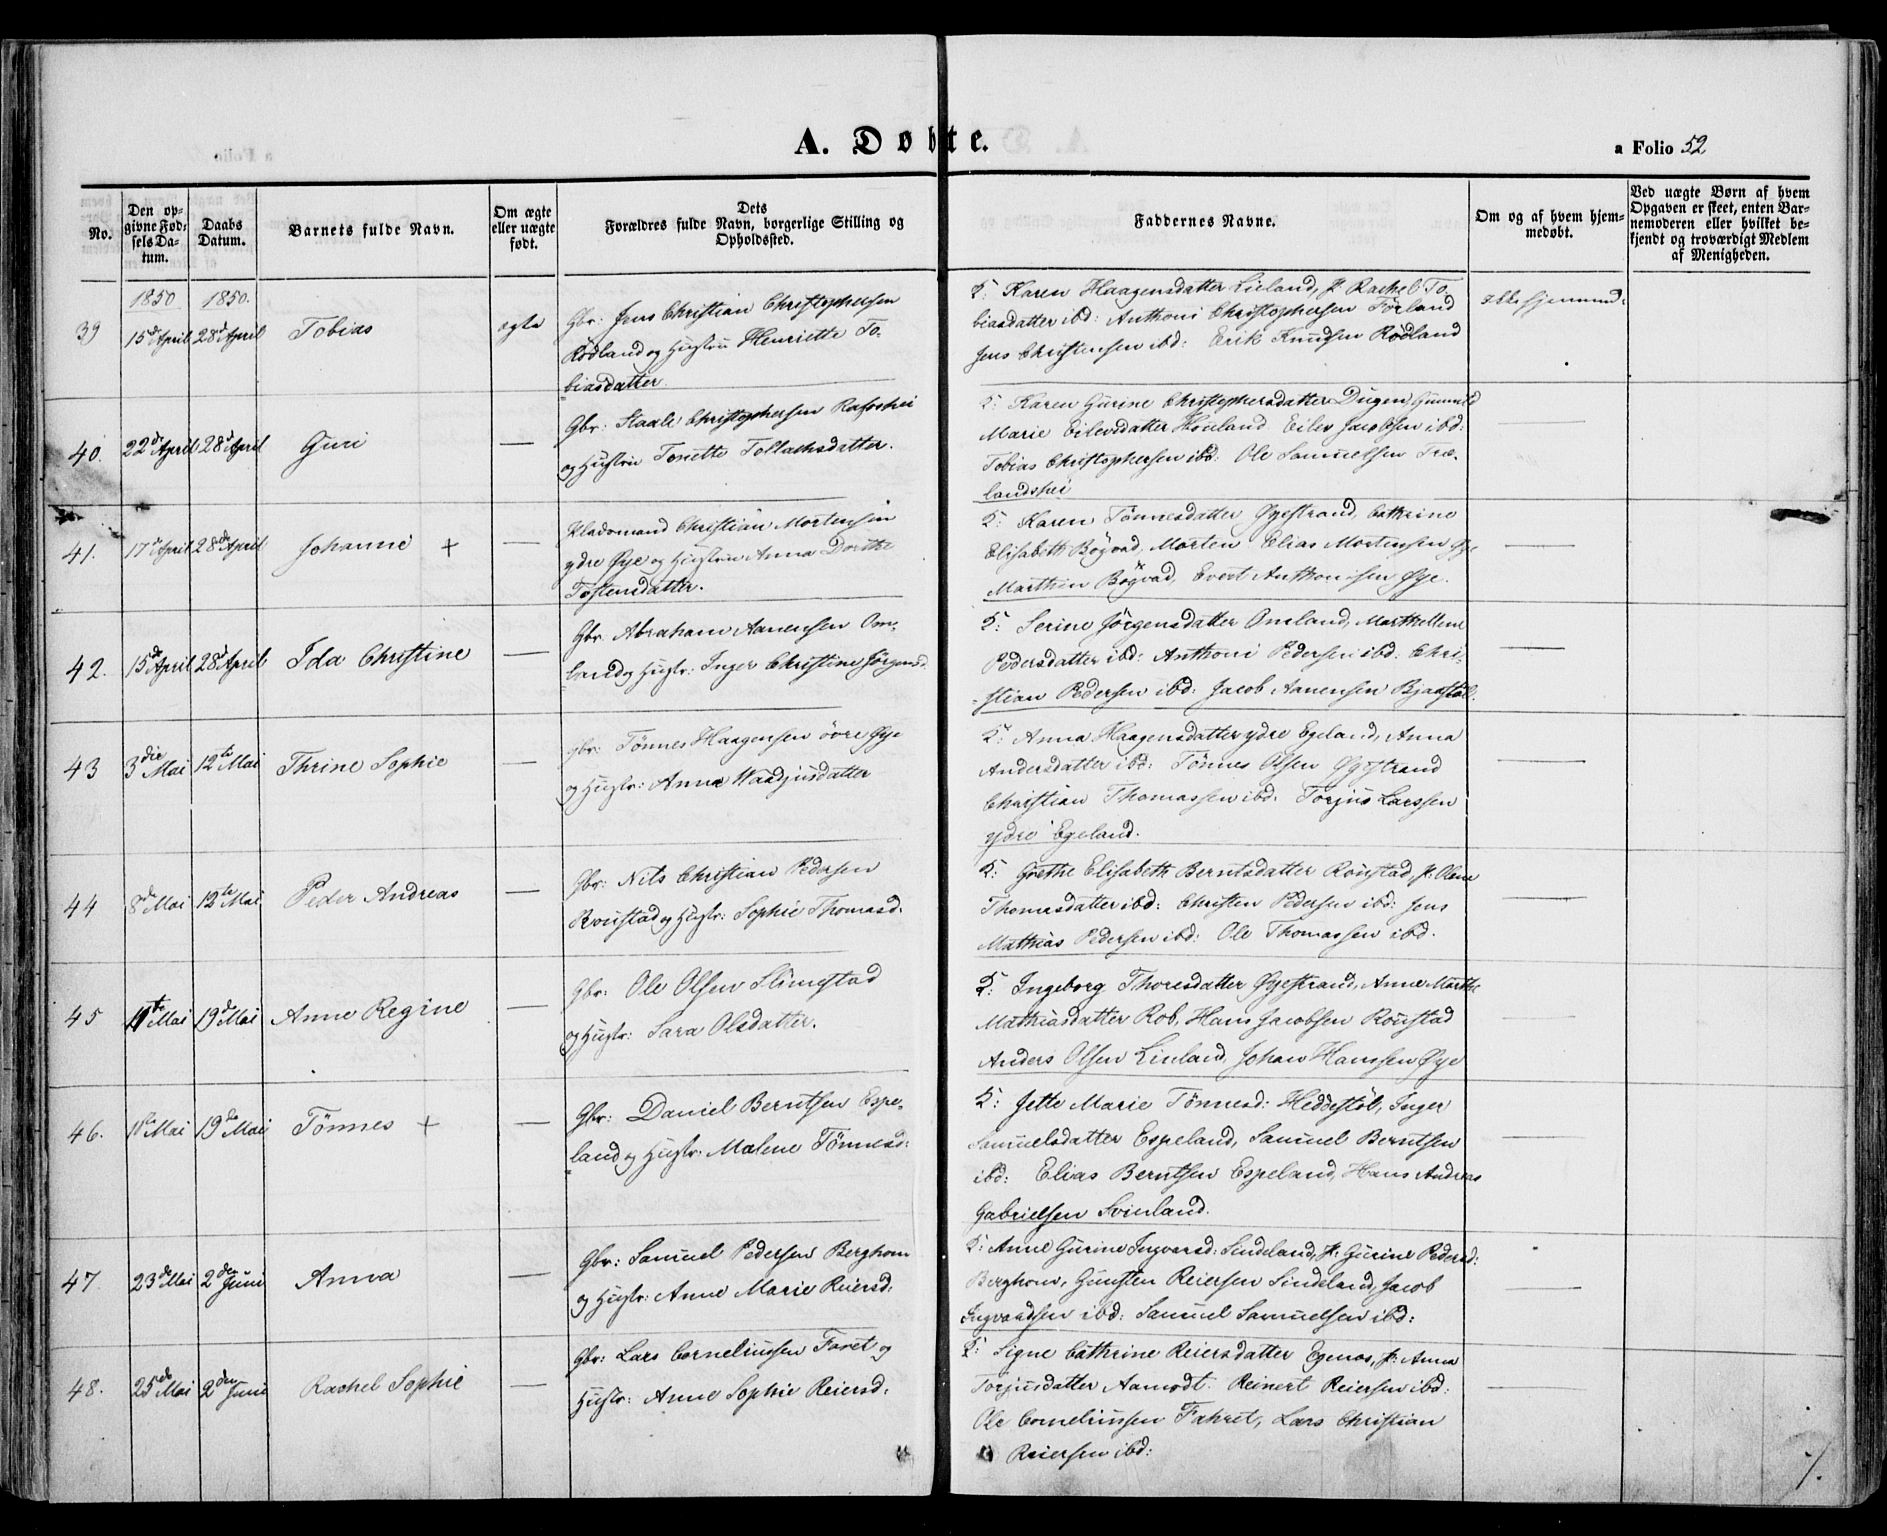 A. Døbte.
a Folio 52
No.
Den op-
givne Fød-
sels Da-
tum.
Daabs
Datum.
Barnets fulde Navn.
Om ægte
eller uægte
født.
Dets
Forældres fulde Navn, borgerlige Stilling og
Opholdssted.
Faddernes Navne.
Om og af hvem hjem-
medøbt.
Ved uægte Børn af hvem
Opgaven er skeet, enten Bar-
nemoderen eller hvilket be-
kjendt og troværdigt Medlem
af Menigheden.
1850 1850.
39 15de April 28d April Tobias ægte
Gbr: Jens Christian Christophersen
Rødland og Hustru Henriette To-
biasdatter.
Karen Haagensdatter Lieland, P. Rachel To-
biasdatter ibd: Anthoni Christophersen Förland
Jens Christensen ibd: Erik Knudsen Rødland
ikke hjemmed:
40. 22de April 28d April Guri —
Gbr: Staale Christophersen Rafoshei
og Hustru Tonette Tollachsdatter.
Karen Gurine Christophersdatter Dugen, Gunnild
Marie Eilevsdatter Houland Eilev Jacobsen ibd:
Tobias Christophersen ibd: Ole Samuelsen Træ-
landshei
—
41. 17de April 28de April Johanne + —
Kladsmand Christian Mortensen
ydre Øye og Hustru Anna Dorthe
Tostensdatter.
Karen Tönnesdatter Øyestrand, Cathrine
Elisabeth Bögvad, Morten Elias Mortensen Øye
Marthin Bögvad, Evert Anthonisen Øye.
—
42. 15de April 28d April Ida Christine —
Gbr. Abraham Aanensen Om-
land og Hustr: Inger Christine Jörgensd.
Serine Jörgensdatter Omland, Marthe Lene
Pedersdatter ibd: Anthoni Pedersen ibd. Chri-
stian Pedersen ibd: Jacob Aanensen Bjaastøl.
—
43 3die Mai 12te Mai Thrine Sophie —
gbr: Tönnes Haagensen övre Øye
og Hustr: Anna Waadjusdatter
Anna Haagensdatter ydre Egeland, Anna
Andersdatter ibd: Tönnes Olsen Øyestrand
Christian Thomassen ibd. Torjus Larssen
ydre Egeland.
—
44 8de Mai 12te Mai Peder Andreas —
Gbr: Nils Christian Pedersen
Roustad og Hustr: Sophie Thomasd.
Grethe Elisabeth Berntsdatter Roustad, P: Olene
Thomasdatter ibd: Christen Pedersen ibd: Jens
Mathias Pedersen ibd: Ole Thomassen ibd.
—
45 11te Mai 19de Mai Anne Regine —
Gbr: Ole Olsen Slimestad
og Hustr: Sara Olsdatter.
Ingeborg Thoresdatter Øyestrand, Anne Marthe
Mathiasdatter Rob, Hans Jacobsen Roustad
Anders Olsen Linland, Johan Hanssen Øye
—
46. 11te Mai 19de Mai Tönnes + —
Gbr: Daniel Berntsen Espe-
land og Hustr. Malene Tönnesd:
Jette Marie Tönnesd: Heddestöl, Inger
Samuelsdatter Espeland, Samuel Berntsen
ibd: Elias Berntsen Espeland, Hans Andreas
Gabrielsen Svinland.
—
47 23de Mai 2den Juni Anna —
Gbr: Samuel Pedersen Berghom
og Hustr: Anne Marie Reiersd:
Anne Gurine Ingvarsd: Sindeland, P: Gurine Pedersd:
Berghom, Gunsten Reiersen Sindeland, Jacob
Ingvaldsen ibd: Samuel Samuelsen ibd:
—
48. 25de Mai 2den Juni Rachel Sophie —
Gbr: Lars Corneliussen Faret og
Hustr: Anne Sophie Reiersd:
Signe Cathrine Reiersdatter Egenæs, P: Anna
Torjusdatter Aamodt. Reinert Reiersen ibd:
Ole Corneliussen Fahret, Lars Christian
Reiersen ibd:
—